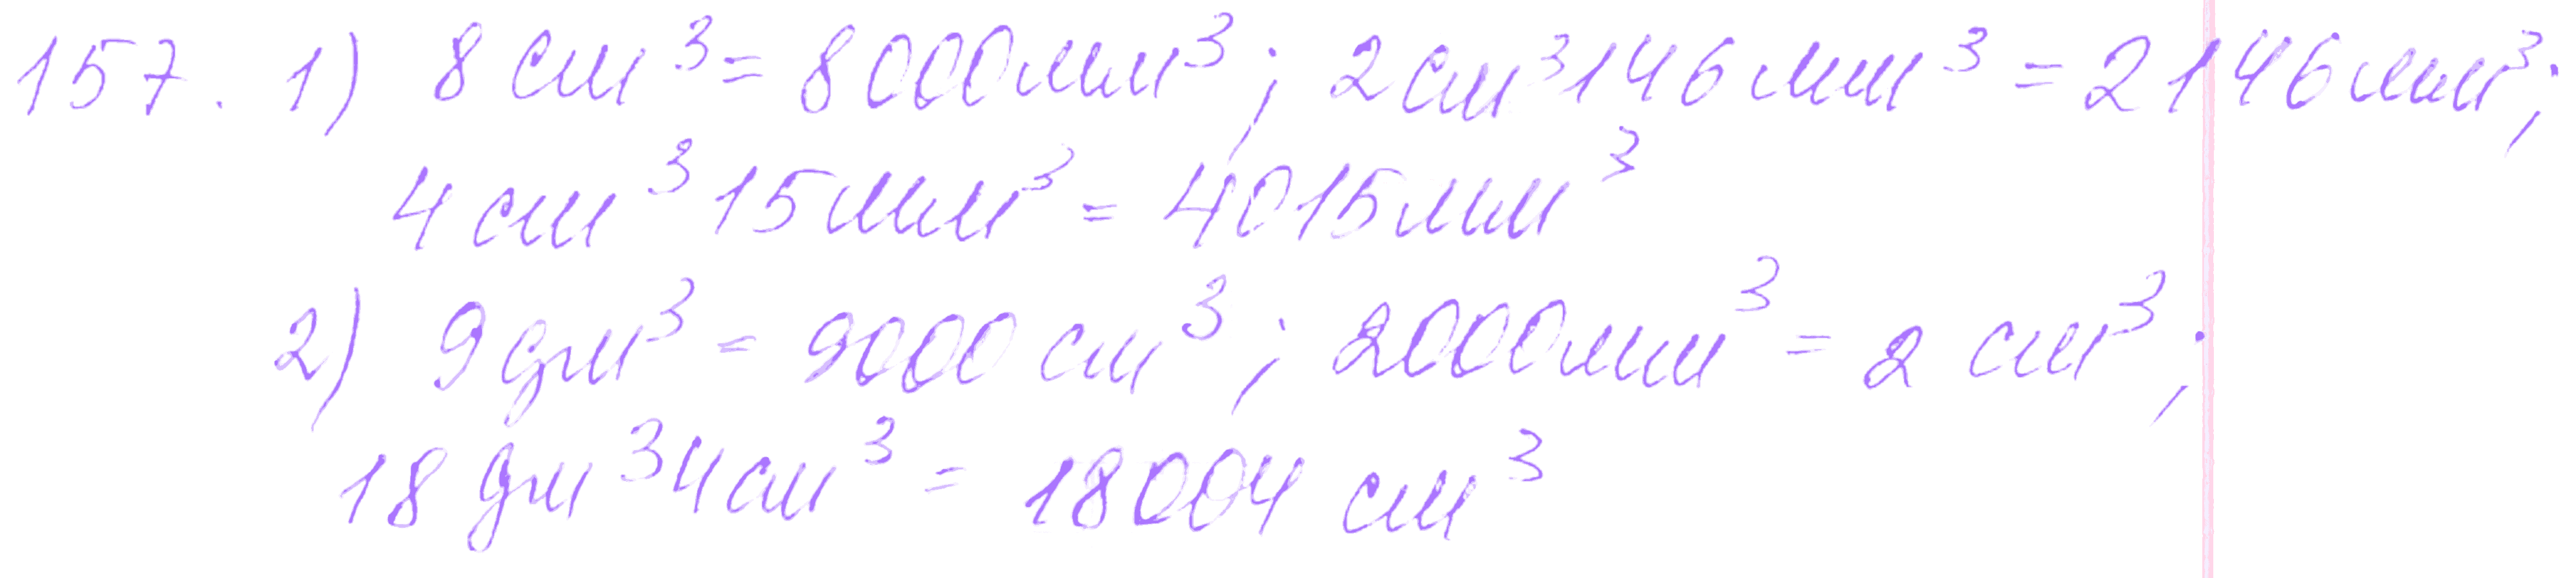 157. 1) 8 см³ = 8000 мм³; 2 см³ 146 мм³ = 2146 мм³;
4 см³ 15 мм³ = 4015 мм³
2) 9 дм³ = 9000 см³; 2000 мм³ = 2 см³;
18 дм³ 4 см³ = 18004 см³